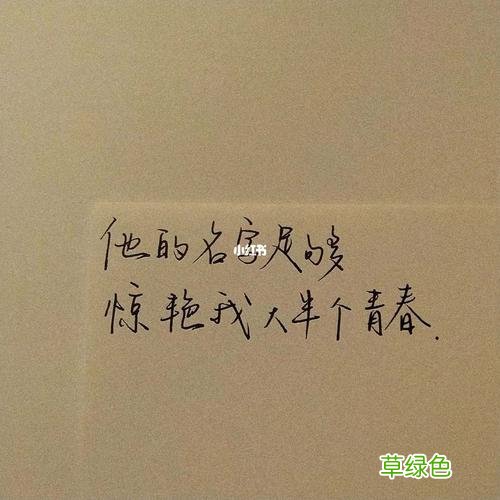 他的名字足够
小红书
惊艳我大半个青春.
草绿色